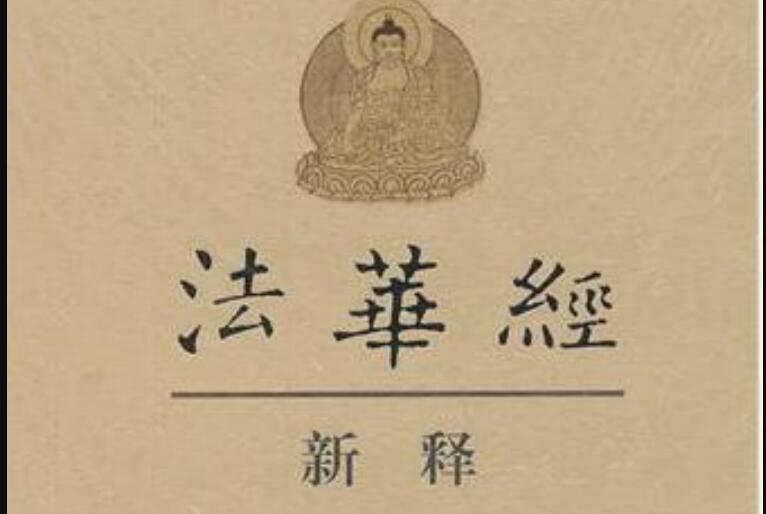 法華經
新释